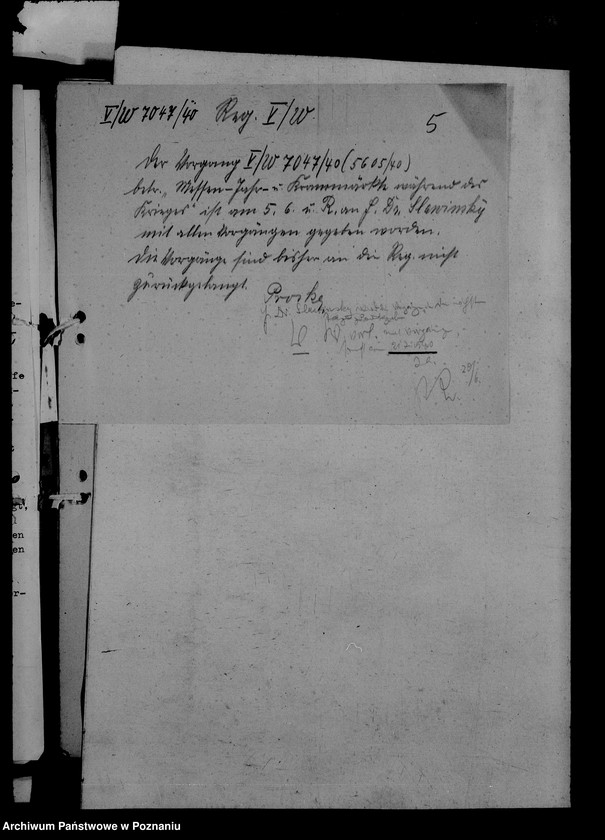 V/W 7047/40 Reg. V/W.
5
Der Vorgang V/W 7047/40 (5605/40)
betr. "Messen-Jahr- u. Krammärkte während des
Krieges" ist am 5. 6. u. R. an H. Dr. Slawinsky
mit allen Vorgängen gegeben worden.
Die Vorgänge sind bisher an die Reg. nicht
zurückgelangt.
Proske
H. Dr.
vorl. mit Vorgang
fe
gt,
en
en
r-
Archiwum Państwowe w Poznaniu